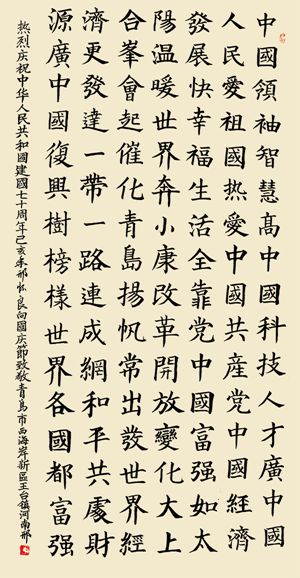 中國領袖智慧髙中國科技人才廣中國
人民愛祖國热愛中國共産党中國經濟
發展快幸福生活全靠党中國富强如太
陽温暖世界奔小康改革開放變化大上
合峯會起催化青島揚帆常出發世界經
濟更發達一帶一路連成網和平共處財
源廣中國復興樹榜樣世界各國都富强
热烈庆祝中华人民共和國建國七十周年己亥年邢怀良向國庆節致敬青島市西海岸新區王台鎮河南邢